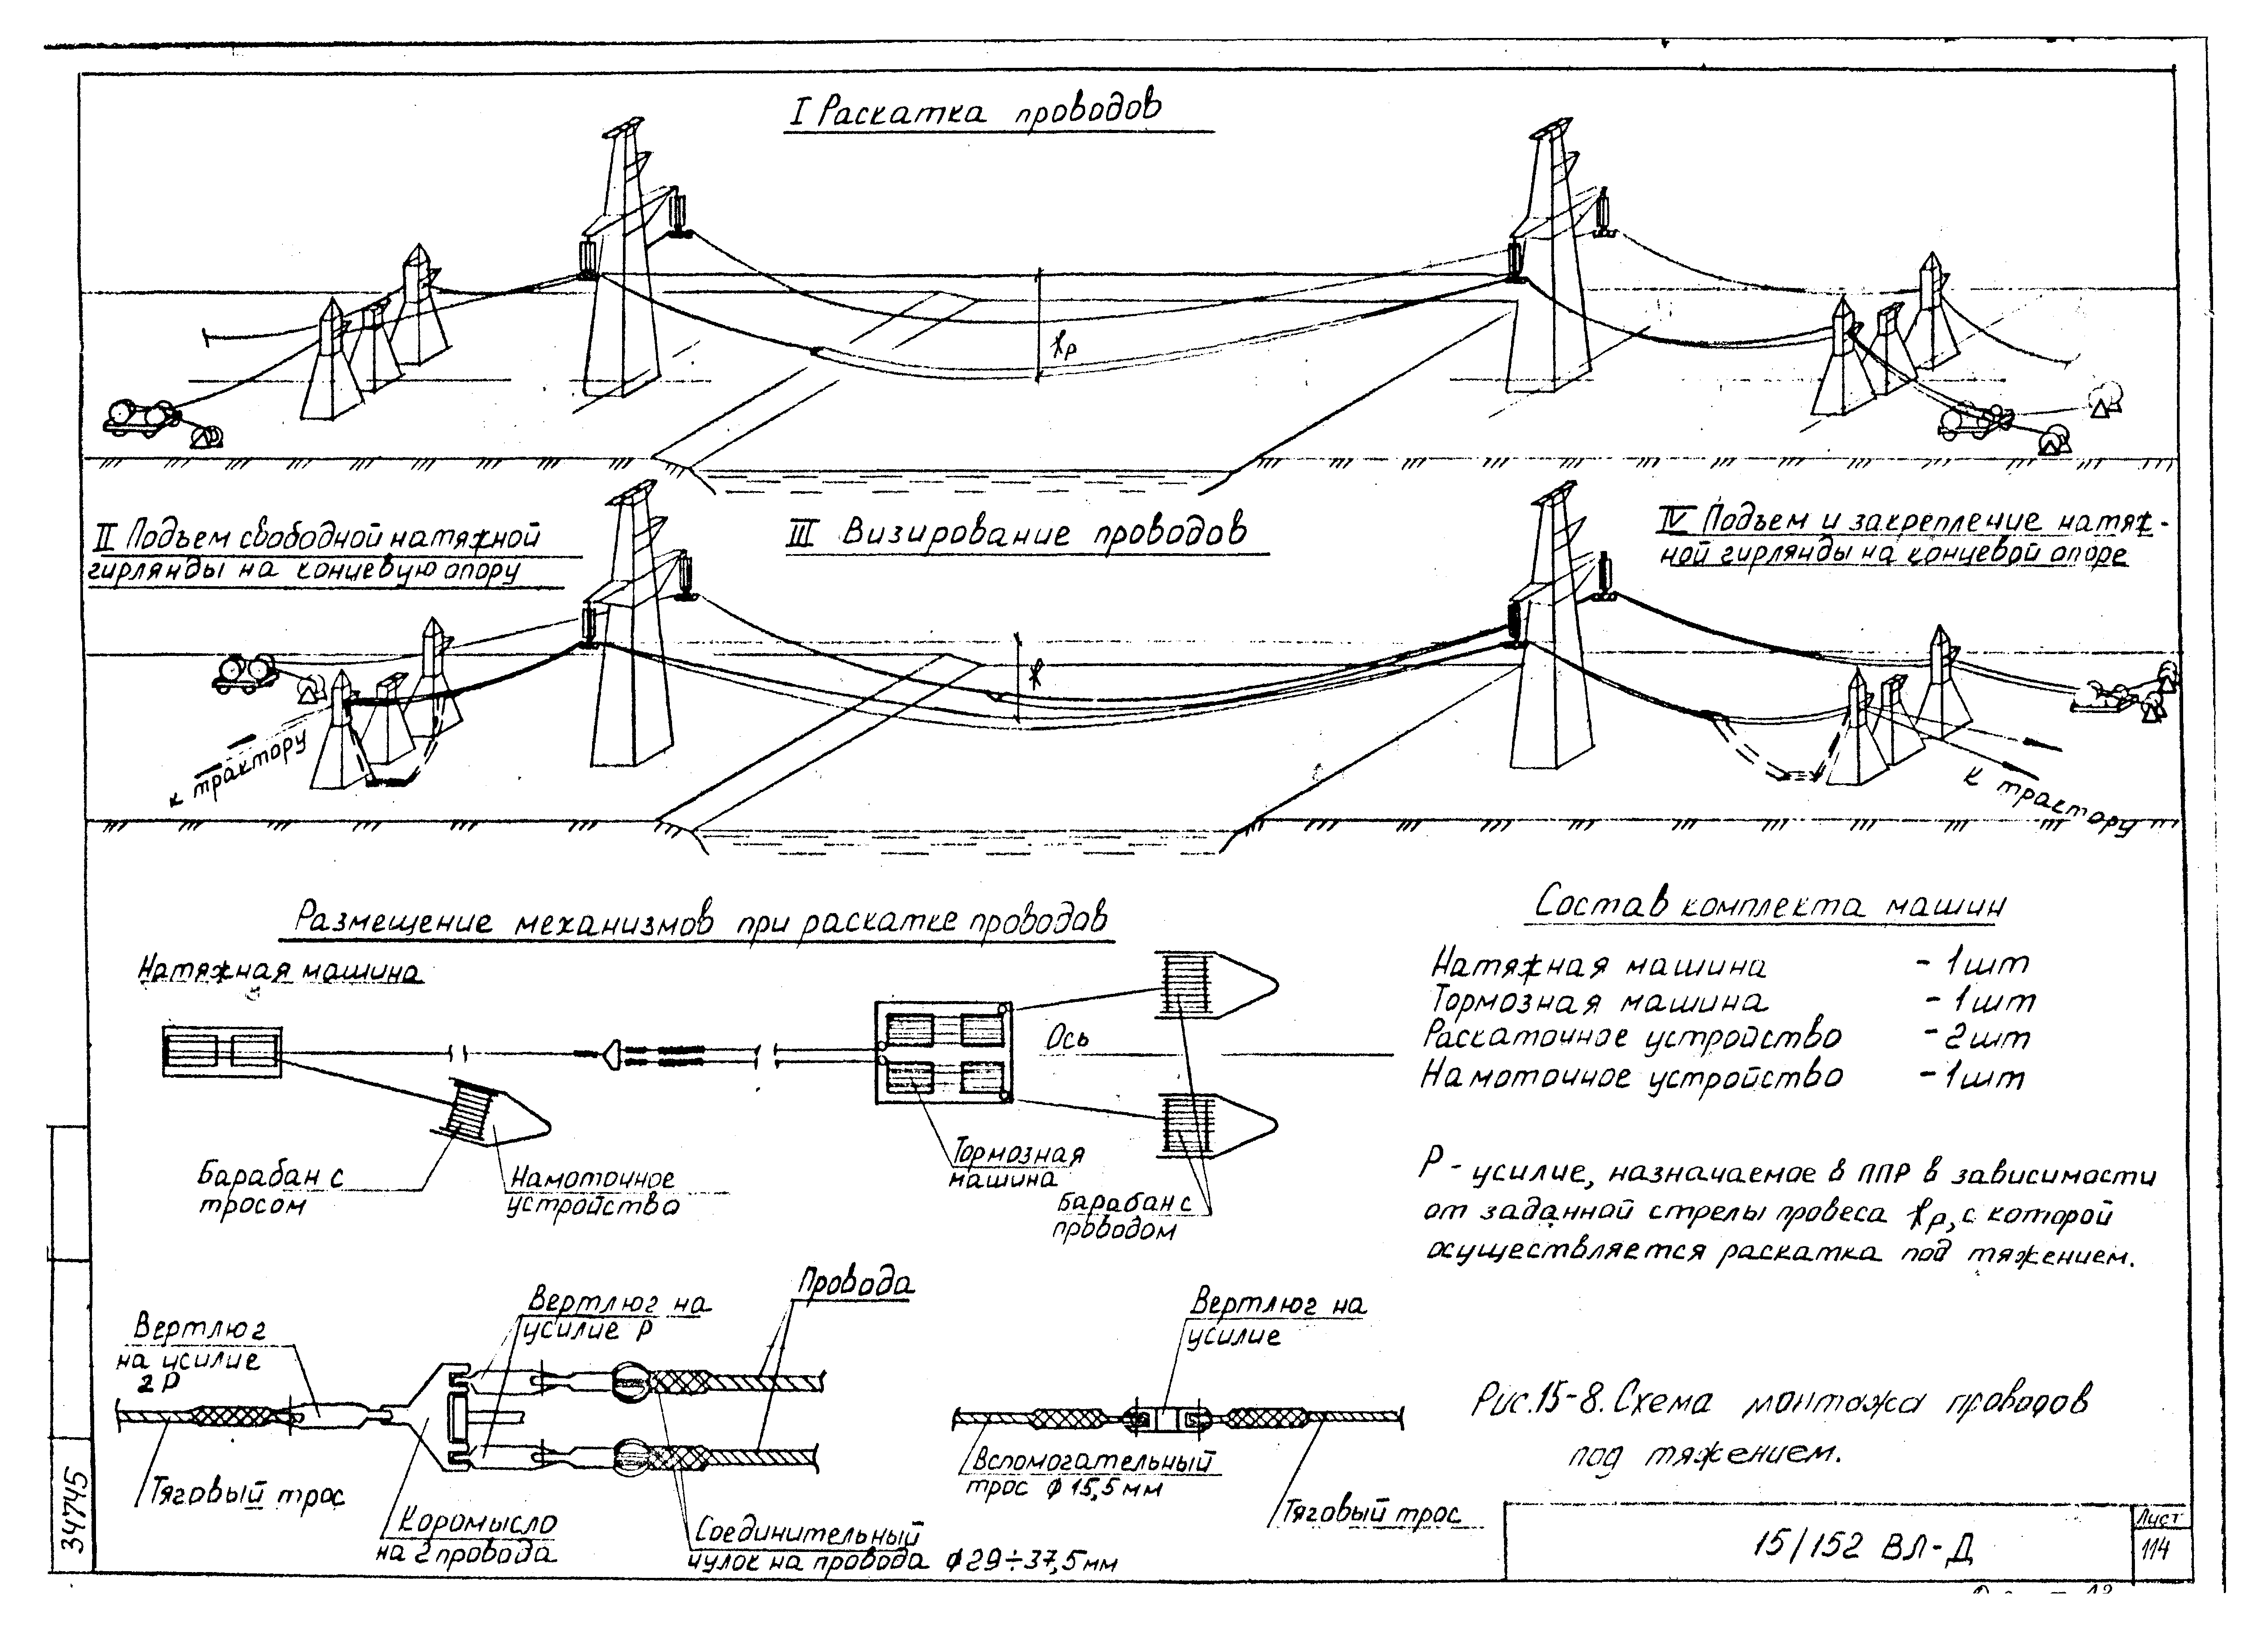 I Раскатка проводов
fp
II Подъем свободной натяжной
гирлянды на концевую опору
III Визирование проводов
IV Подъем и закрепление натяж-
ной гирлянды на концевой опоре
f
к трактору
к трактору
Размещение механизмов при раскатке проводов
Натяжная машина
Ось
Барабан с
тросом
Намоточное
устройство
Тормозная
машина
Барабан с
проводом
Состав комплекта машин
Натяжная машина - 1 шт
Тормозная машина - 1 шт
Раскаточное устройство - 2 шт
Намоточное устройство - 1 шт
Р - усилие, назначаемое в ППР в зависимости
от заданной стрелы провеса fр, с которой
осуществляется раскатка под тяжением.
Вертлюг
на усилие
2Р
Вертлюг на
усилие Р
Провода
Тяговый трос
Коромысло
на 2 провода
Соединительный
чулок на провода ϕ29÷37,5 мм
Вертлюг на
усилие
Вспомогательный
трос ϕ 15,5 мм
Тяговый трос
Рис.15-8. Схема монтажа проводов
под тяжением.
15/152 ВЛ-Д
Лист
114
34745